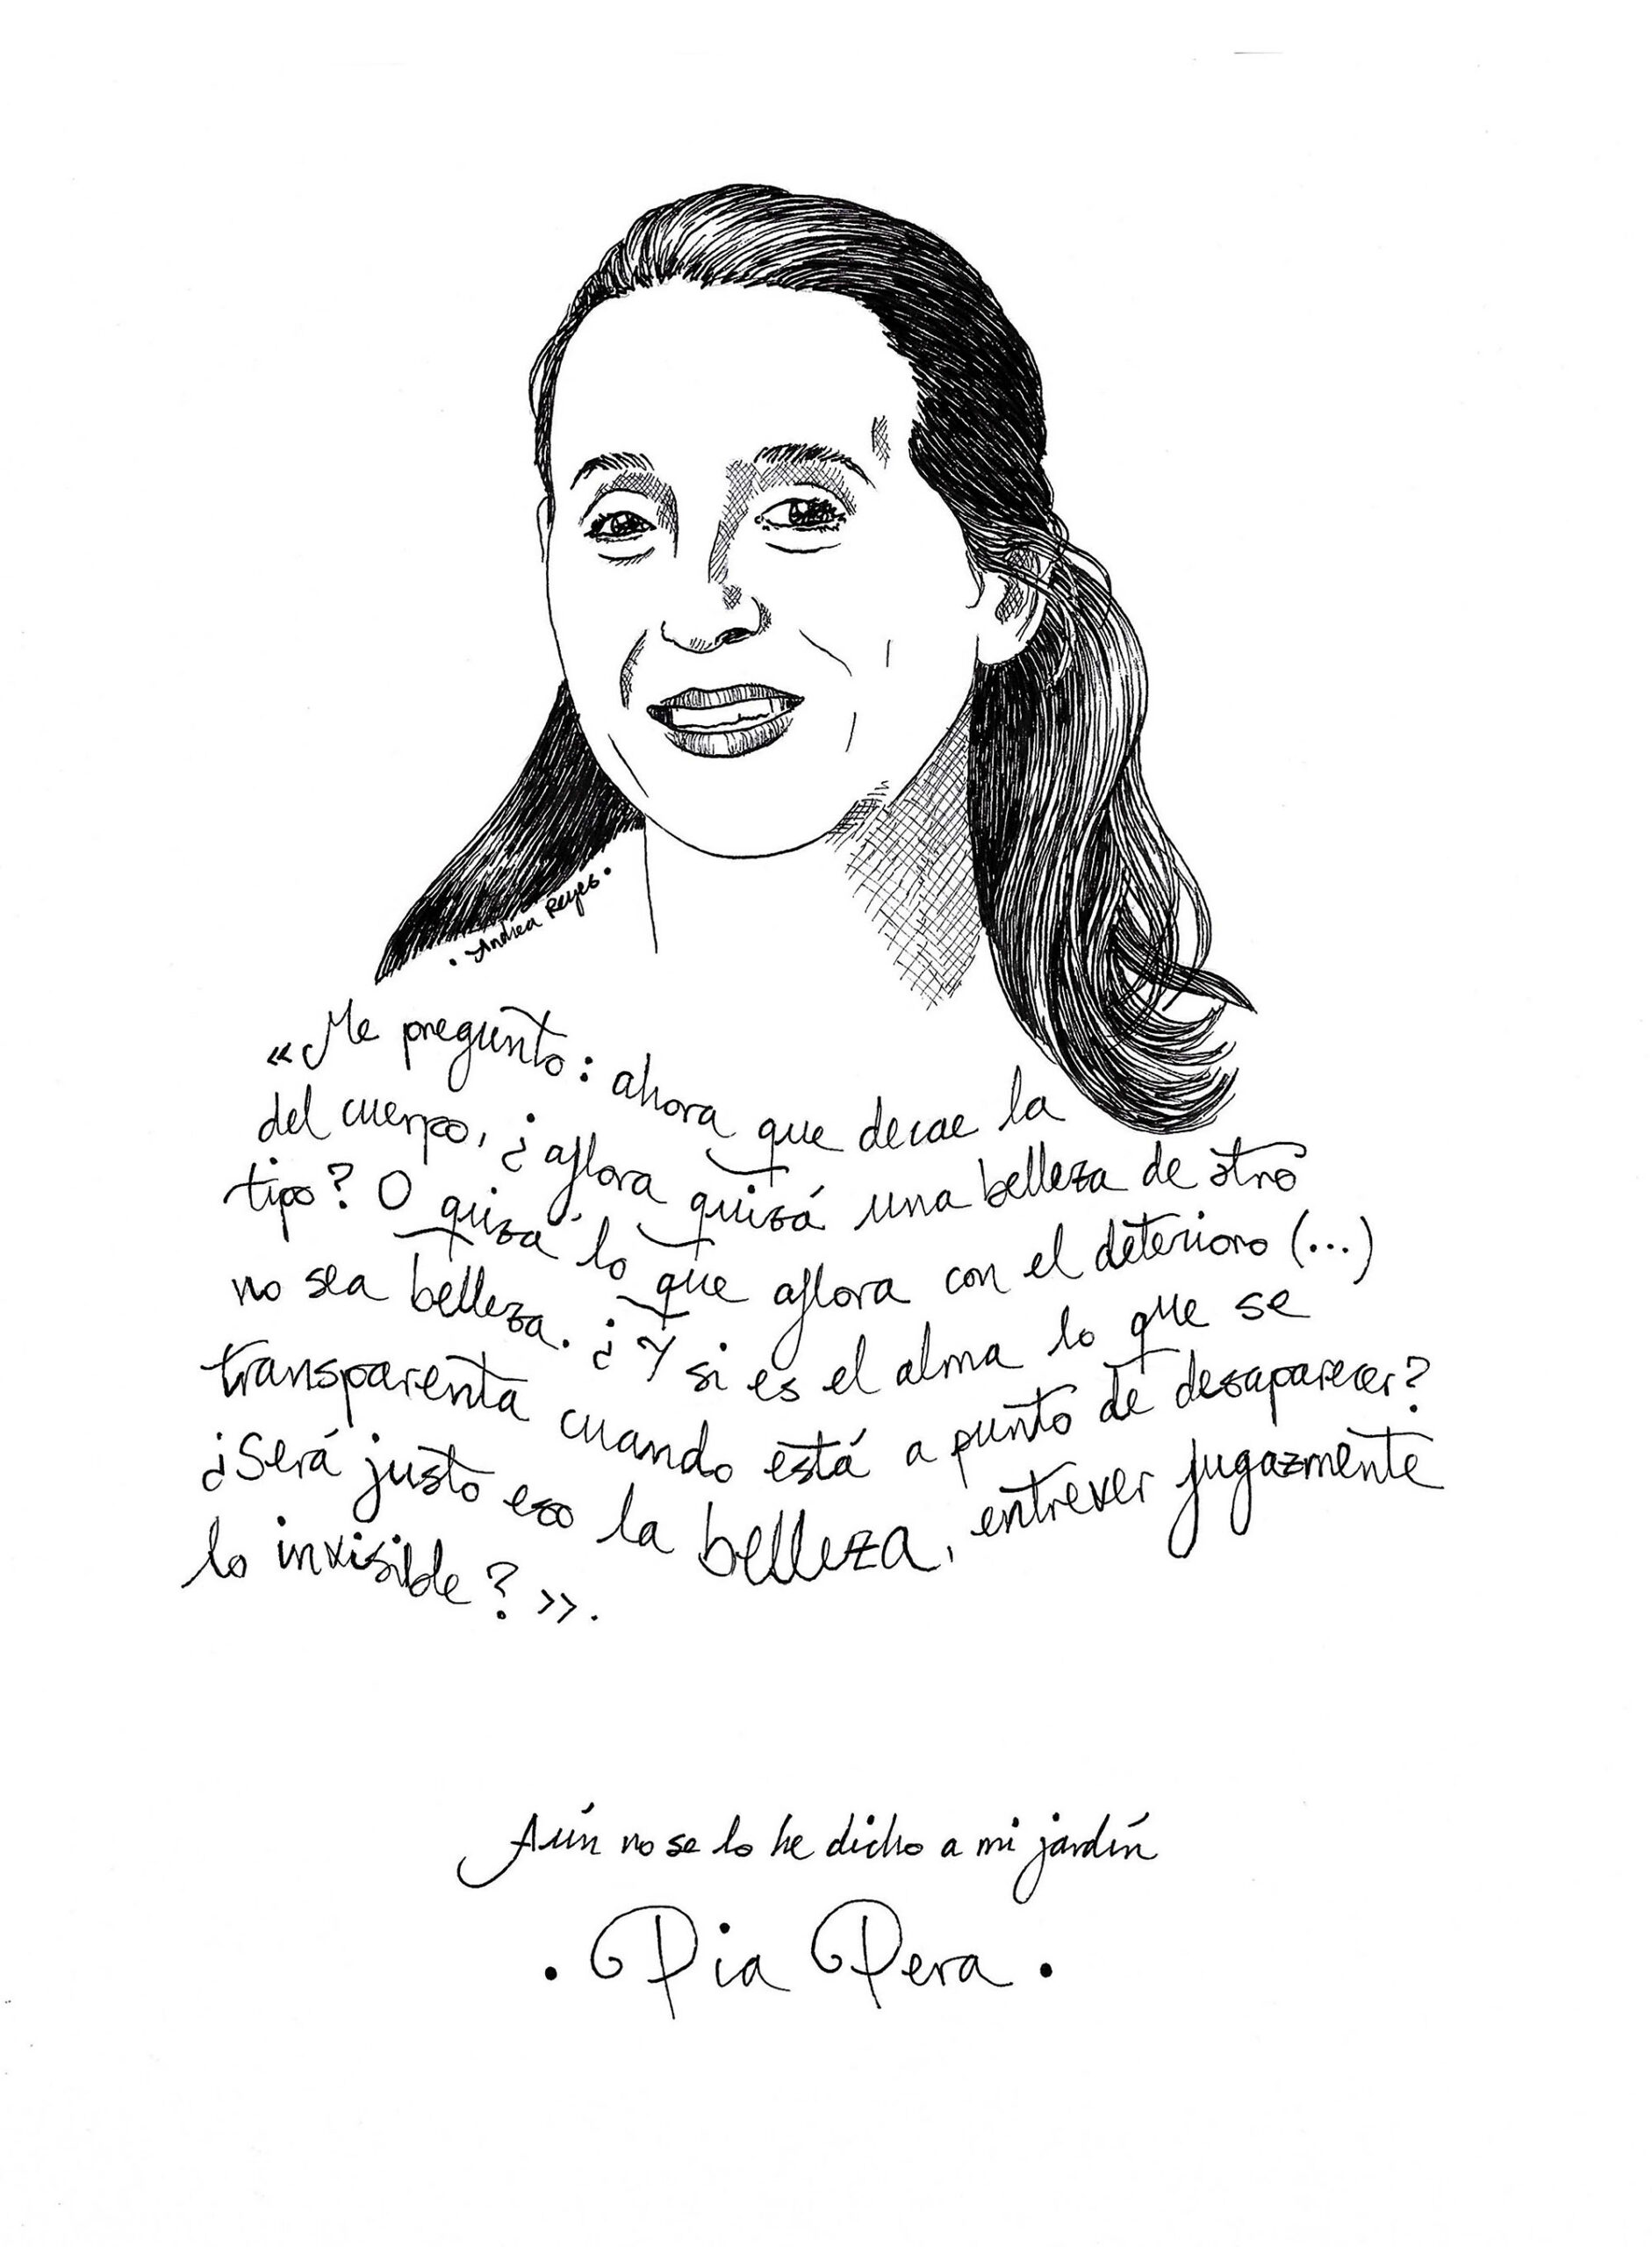 ·Andrea Reyes·
«Me pregunto: ahora que decae la
del cuerpo, ¿aflora quizá una belleza de otro
tipo? O quizá lo que aflora con el deterioro (...)
no sea belleza. ¿Y si es el alma lo que se
transparenta cuando está a punto de desaparecer?
¿Será justo eso la belleza, entrever fugazmente
lo invisible?».
Aún no se lo he dicho a mi jardín
·Pia Pera·